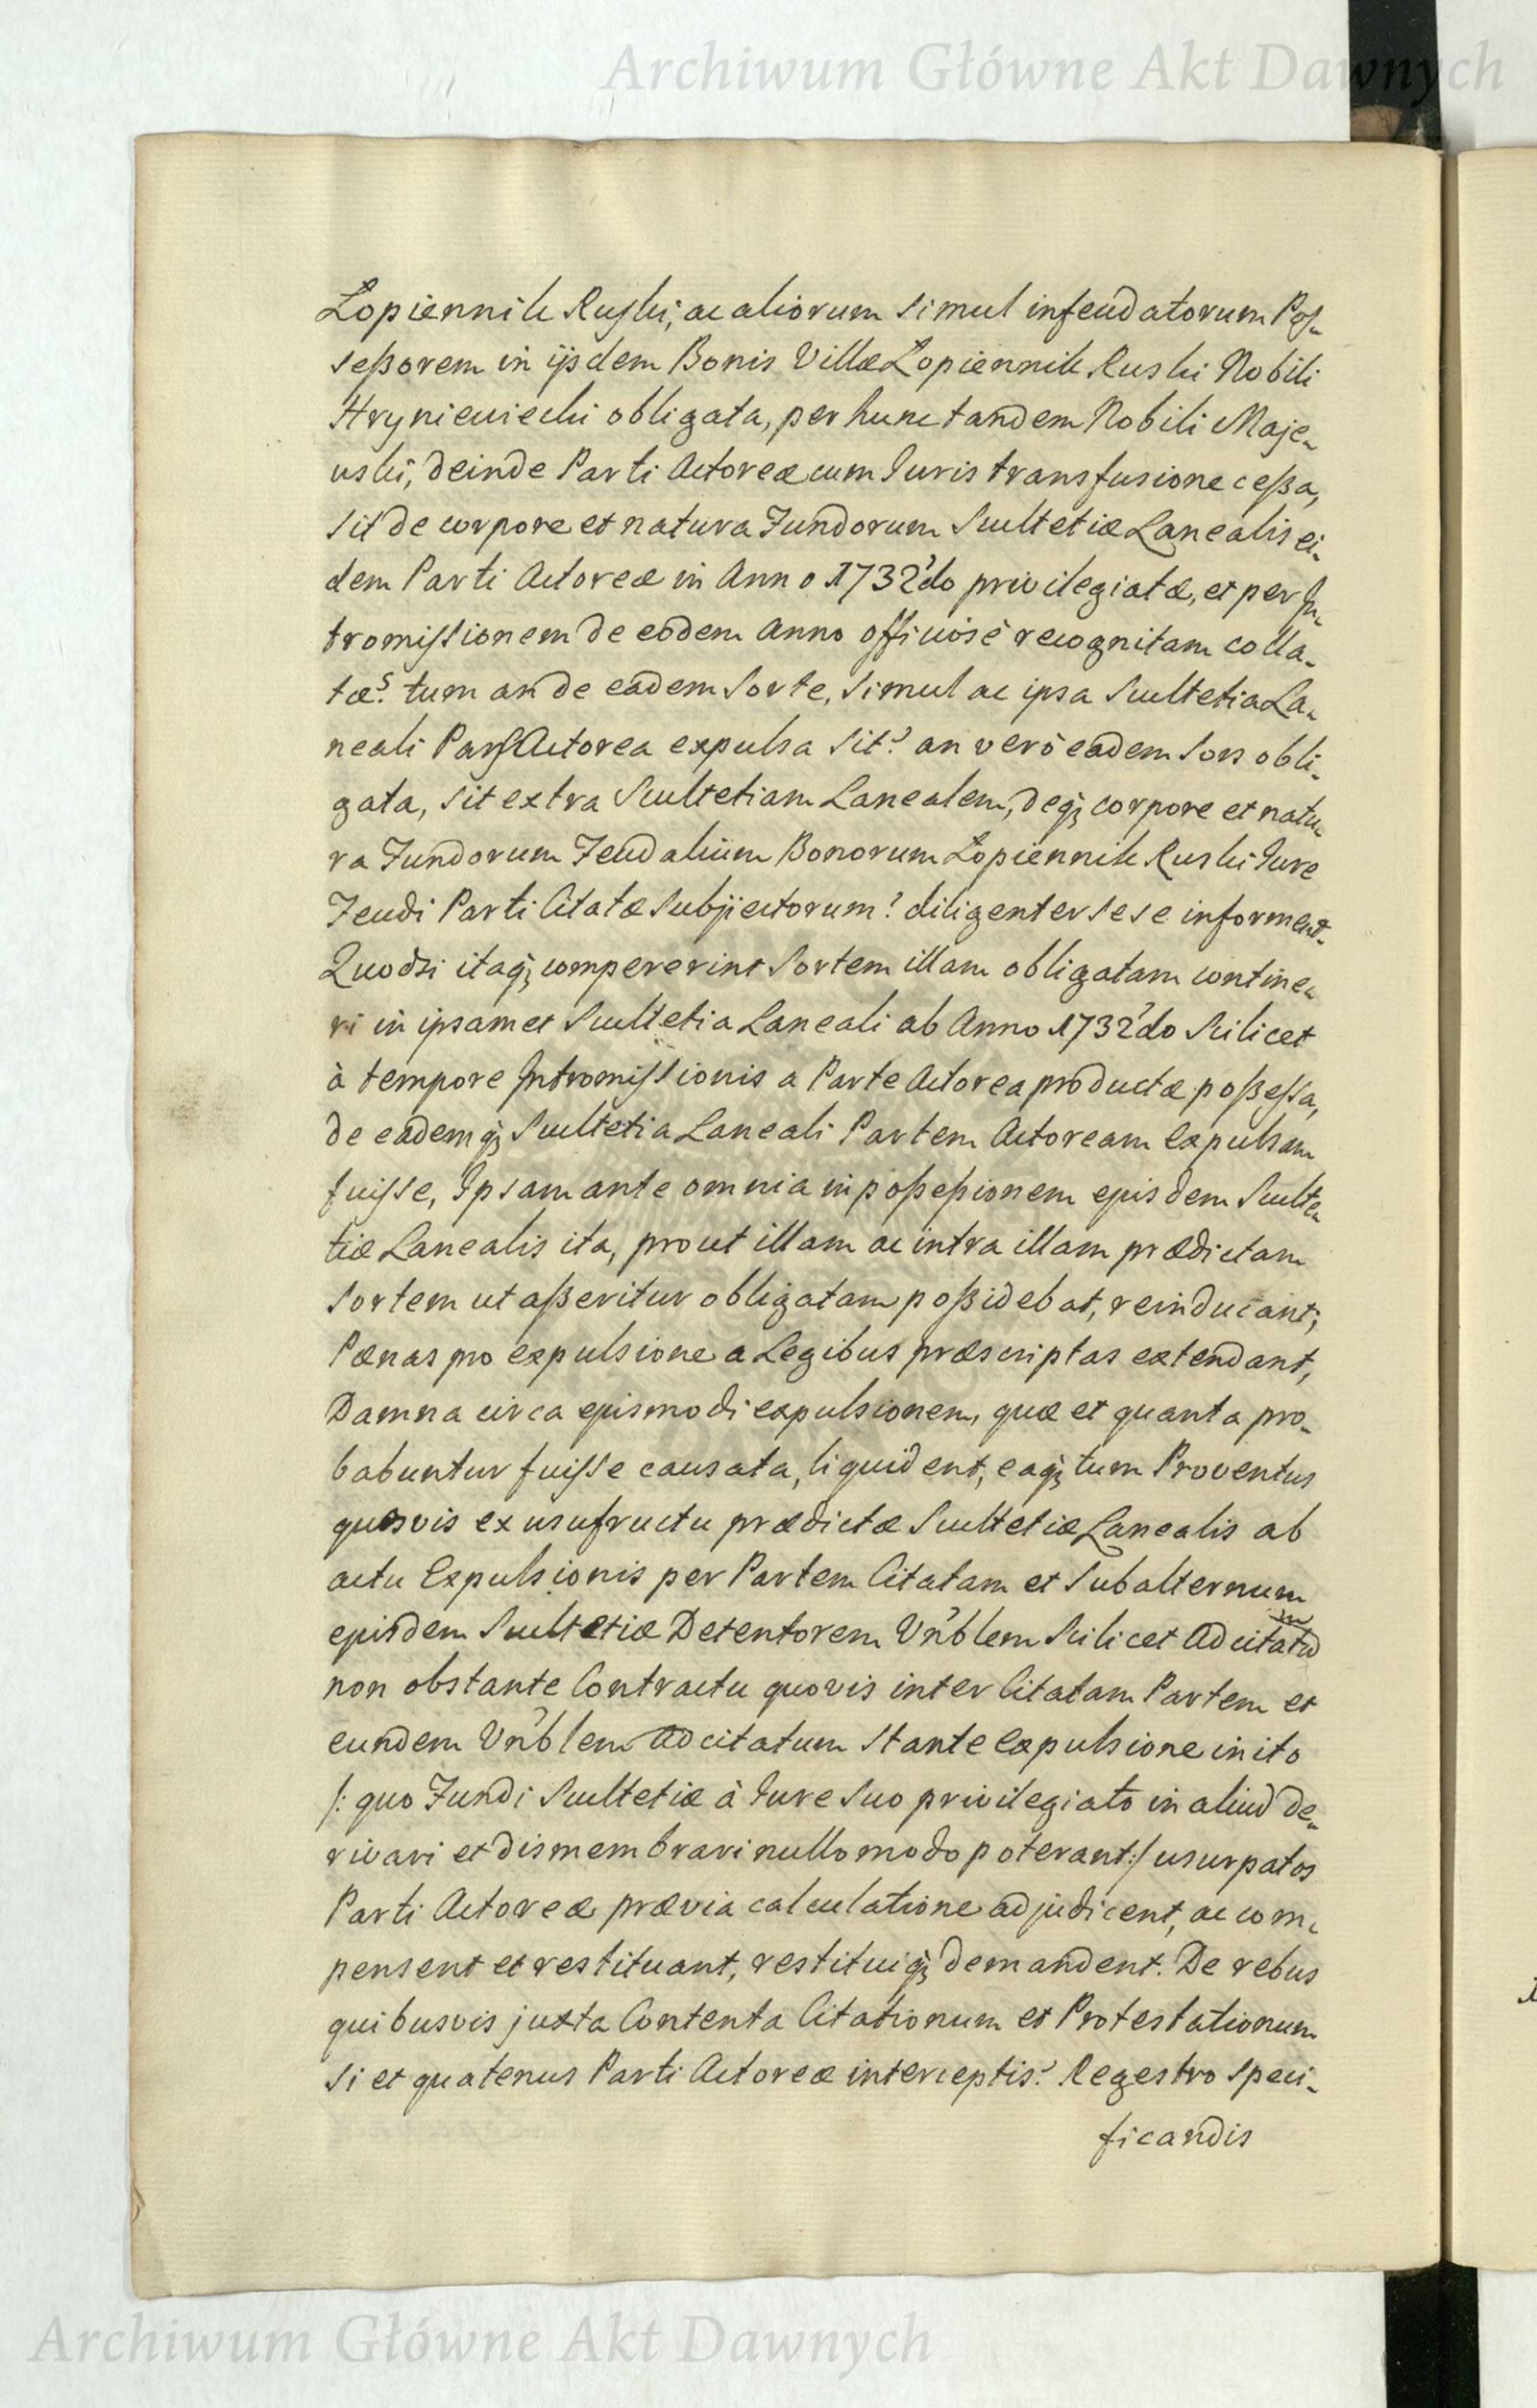 Archiwum Główne Akt Dawnych
Łopiennik Ruski, ac aliorum simul infeudatorum Pos-
seßorem in ijsdem Bonis Villæ Łopiennik Ruski Nobili
Hryniewiecki obligata, per hunc tandem Nobili Maje-
wski, deinde Parti Actoreæ cum Iuris transfusione ceßa,
sit de corpore et natura Fundorum Scultetiæ Lanealis ei-
dem Parti Actoreæ in Anno 1732do privilegiatæ, et per In-
tromissionem de eodem Anno officiosè recognitam colla-
tæ? tum an de eadem Sorte, simul ac ipsa Scultetia La-
neali Pars Actorea expulsa sit? an verò eadem Sors obli-
gata, sit extra Scultetiam Lanealem, deq; corpore et natu-
ra Fundorum Feudalium Bonorum Łopiennik Ruski Iure
Feudi Parti Citatæ Subjectorum? diligenter sese informent.
Quodsi itaq; compererint Sortem illam obligatam contine-
ri in ipsamet Scultetia Laneali ab Anno 1732do scilicet
à tempore Intromissionis a Parte Actorea productæ poßessa,
de eademq; Scultetia Laneali Partem Actoream expulsam
fuisse, Ipsam ante omnia in poßeßionem ejusdem Sculte-
tiæ Lanealis ita, prout illam ac intra illam prædictam
Sortem ut aßeritur obligatam poßidebat, reinducant;
Pænas pro expulsione a Legibus præscriptas extendant,
Damna circa ejusmodi expulsionem, quæ et quanta pro-
babuntur fuisse causata, liquident, eaq; tum Proventus
quosvis ex usufructu prædictæ Scultetiæ Lanealis ab
actu Expulsionis per Partem Citatam et Subalternum
ejusdem Scultetiæ Detentorem Urb̃lem scilicet Adcitatum
non obstante Contractu quovis inter Citatam Partem et
eundem Urb̃lem Adcitatum stante expulsione inito
/: quo Fundi Scultetiæ à Iure suo privilegiato in aliud de-
rivari et dismembrari nullo modo poterant :/ usurpatos
Parti Actoreæ prævia calculatione adjudicent, ac com-
pensent et restituant, restituiq; demandent. De rebus
quibusvis juxta Contenta Citationum et Protestationum
si et quatenus Parti Actoreæ interceptis? Regestro speci-
ficandis
Archiwum Główne Akt Dawnych